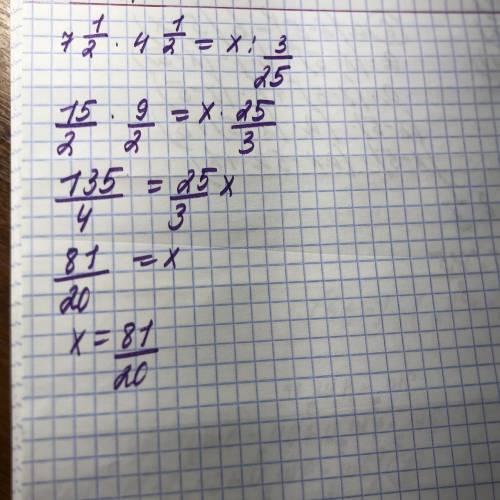 7 1/2 · 4 1/2 = x : 3/25
15/2 · 9/2 = x · 25/3
135/4 = 25/3 x
81/20 = x
x = 81/20